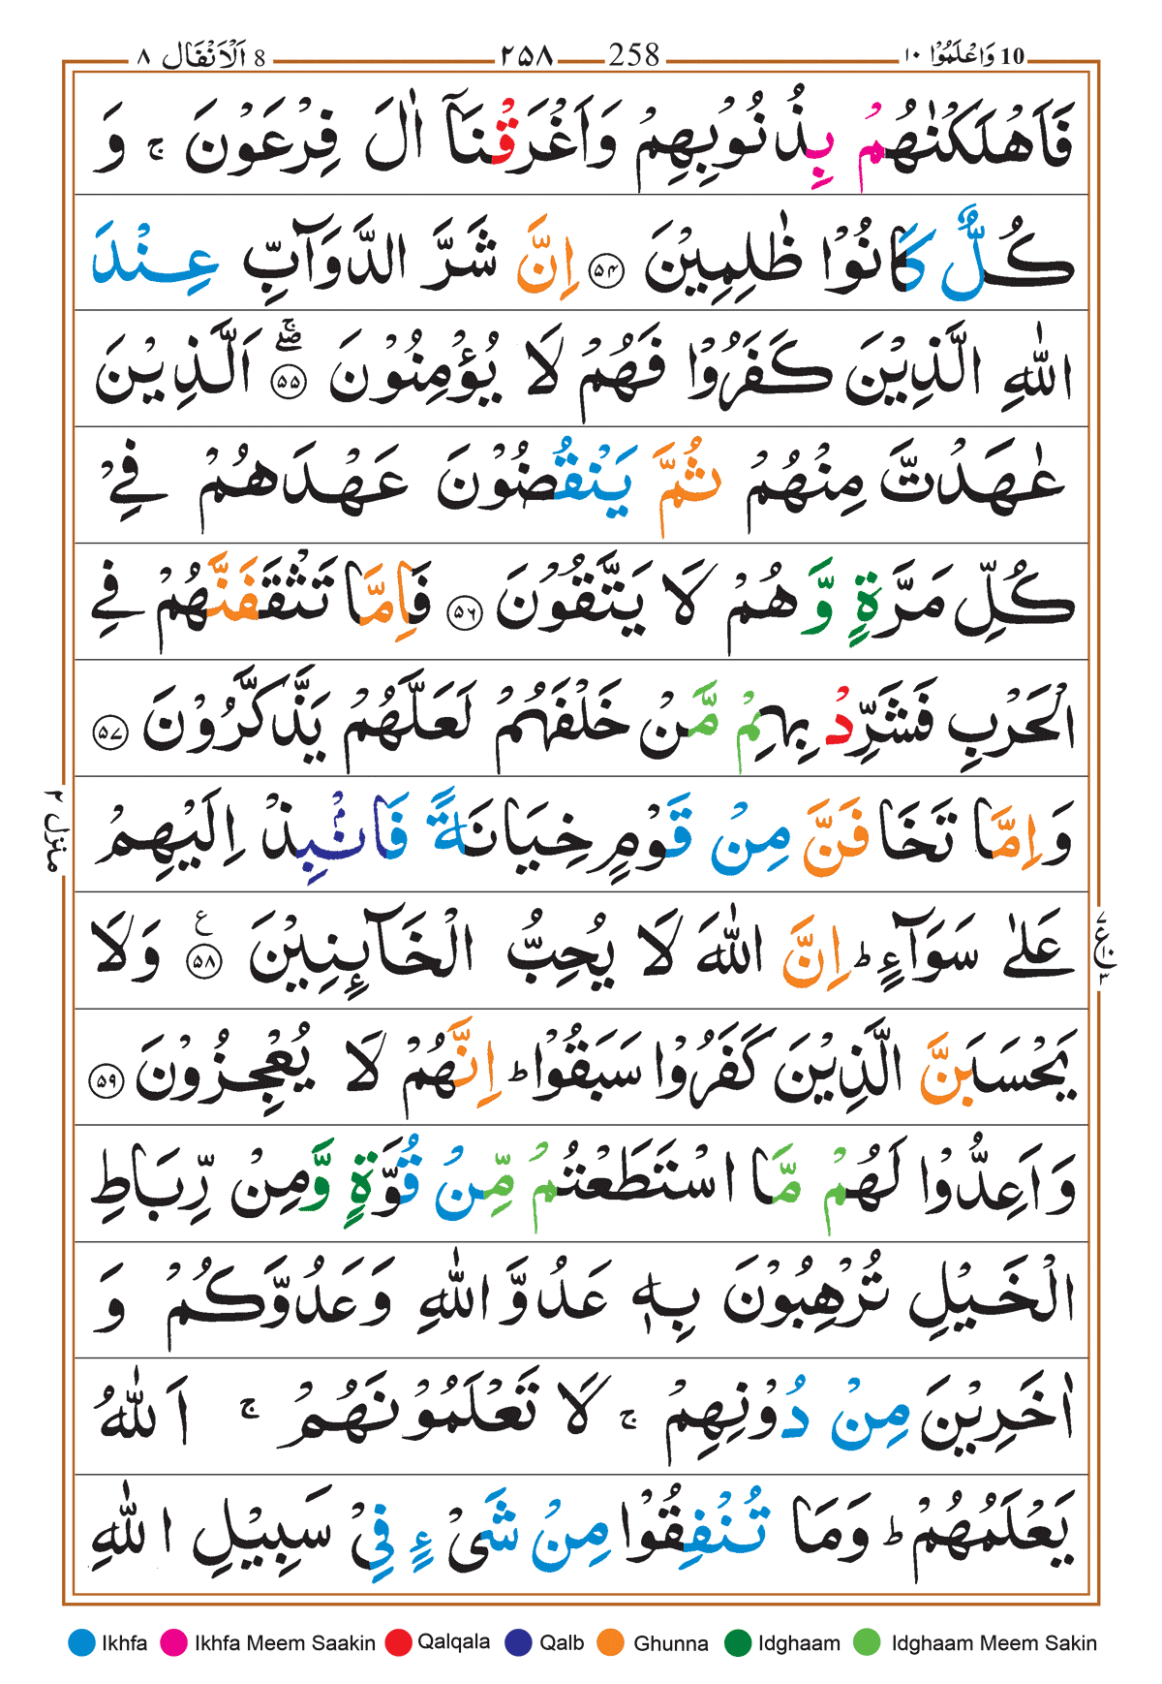 8 اَلْاَنْفَال ٨
258 ٢٥٨
10 وَاعْلَمُوْا ١٠
فَاَهْلَكْنٰهُمْ بِذُنُوْبِهِمْ وَاَغْرَقْنَاۤ اٰلَ فِرْعَوْنَ ۚ وَ
كُلٌّ كَانُوْا ظٰلِمِيْنَ ﴿۵۴﴾ اِنَّ شَرَّ الدَّوَآبِّ عِنْدَ
اللّٰهِ الَّذِيْنَ كَفَرُوْا فَهُمْ لَا يُؤْمِنُوْنَ ﴿۵۵﴾ۖۚ اَلَّذِيْنَ
عٰهَدْتَّ مِنْهُمْ ثُمَّ يَنْقُضُوْنَ عَهْدَهُمْ فِيْ
كُلِّ مَرَّةٍ وَّهُمْ لَا يَتَّقُوْنَ ﴿۵۶﴾ فَاِمَّا تَثْقَفَنَّهُمْ فِي
الْحَرْبِ فَشَرِّدْ بِهِمْ مَّنْ خَلْفَهُمْ لَعَلَّهُمْ يَذَّكَّرُوْنَ ﴿۵۷﴾
وَاِمَّا تَخَافَنَّ مِنْ قَوْمٍ خِيَانَةً فَانْۢبِذْ اِلَيْهِمْ
عَلٰى سَوَآءٍ ؕ اِنَّ اللّٰهَ لَا يُحِبُّ الْخَآئِنِيْنَ ﴿۵۸﴾ ع وَلَا
يَحْسَبَنَّ الَّذِيْنَ كَفَرُوْا سَبَقُوْا ؕ اِنَّهُمْ لَا يُعْجِزُوْنَ ﴿۵۹﴾
وَاَعِدُّوْا لَهُمْ مَّا اسْتَطَعْتُمْ مِّنْ قُوَّةٍ وَّمِنْ رِّبَاطِ
الْخَيْلِ تُرْهِبُوْنَ بِهٖ عَدُوَّ اللّٰهِ وَعَدُوَّكُمْ وَ
اٰخَرِيْنَ مِنْ دُوْنِهِمْ ۚ لَا تَعْلَمُوْنَهُمْ ۚ اَللّٰهُ
يَعْلَمُهُمْ ؕ وَمَا تُنْفِقُوْا مِنْ شَيْءٍ فِيْ سَبِيْلِ اللّٰهِ
منزل ٢
Ikhfa Ikhfa Meem Saakin Qalqala Qalb Ghunna Idghaam Idghaam Meem Sakin